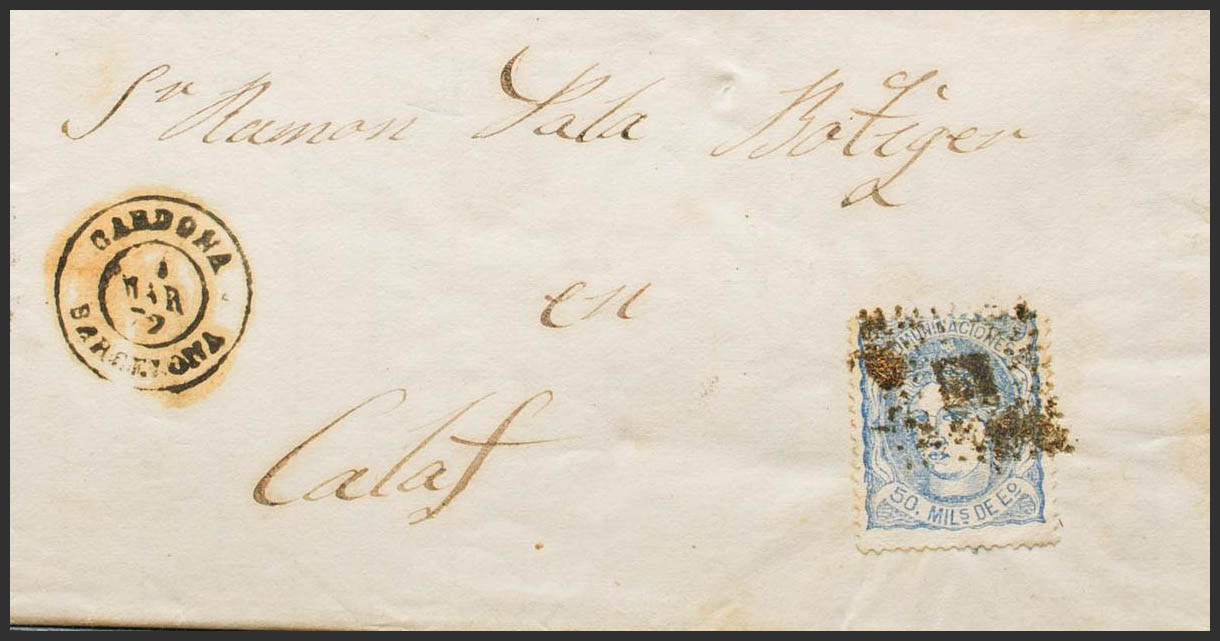 Sr Ramon Sala Botiger
a
en
Calaf
CARDONA
1
MAR
72
BARCELONA
COMUNICACIONES
50. MILS DE EO